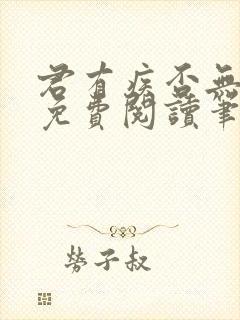 君有疾否無
免費閱讀筆
勞子叔